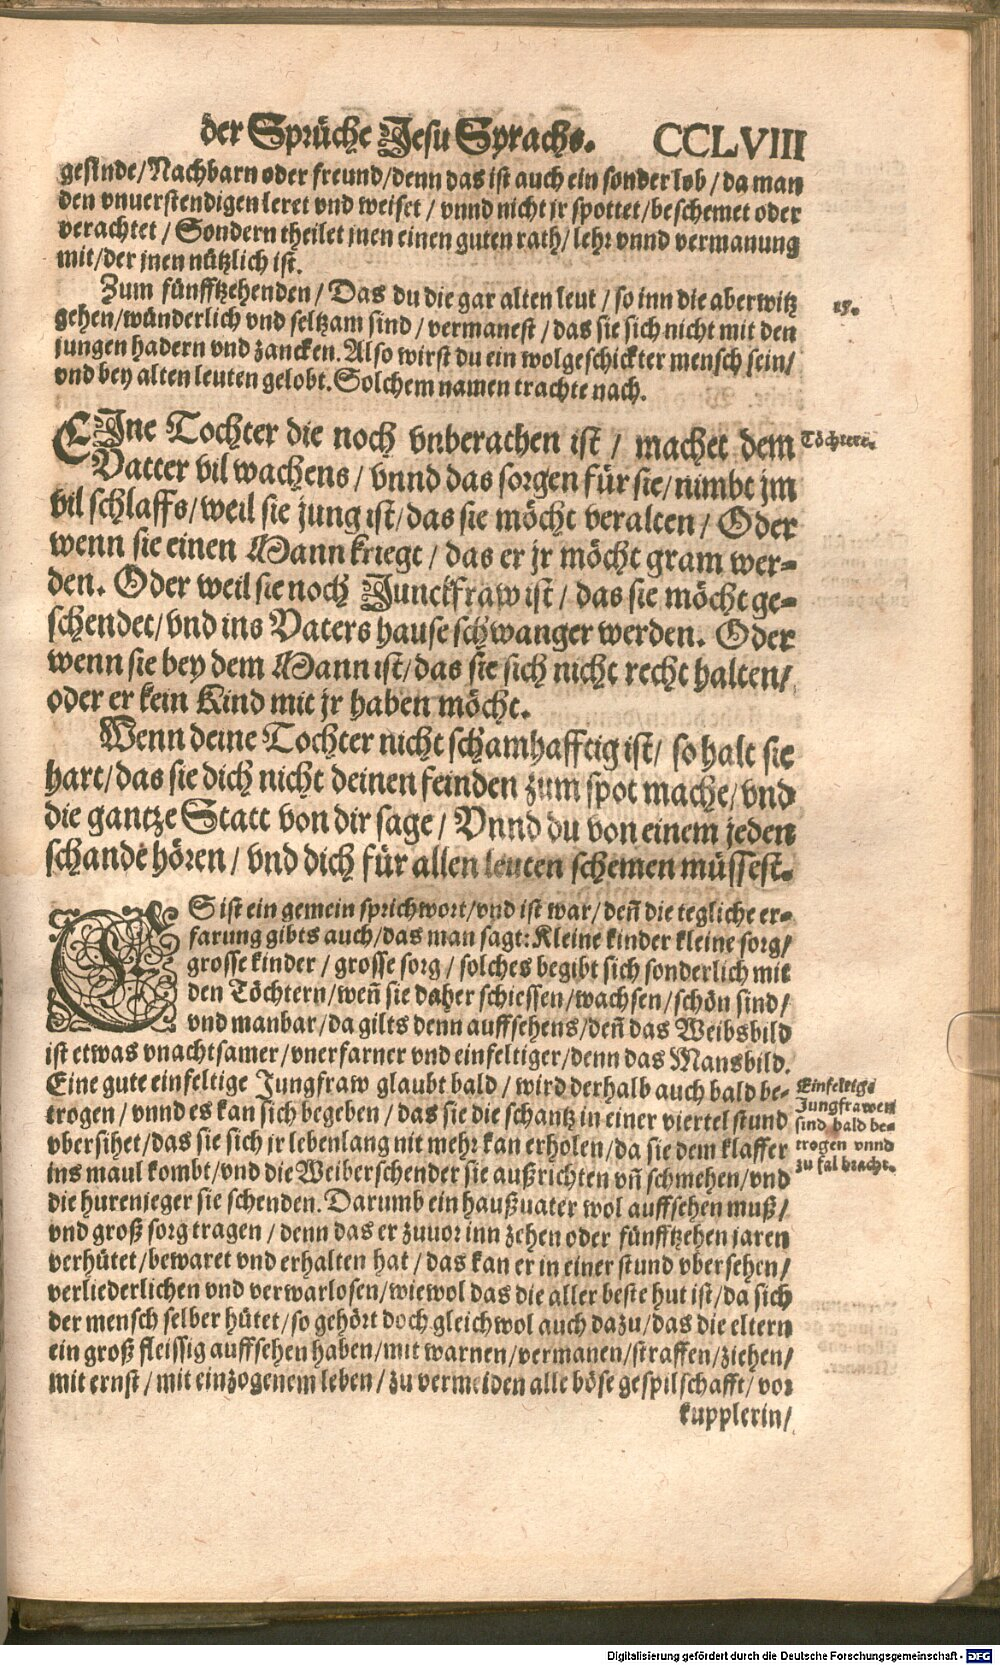 der Sprüche Jesu Syrachs. CCLVIII
gesinde/Nachbarn oder freund/denn das ist auch ein sonder lob/da man
den vnuerstendigen leret vnd weiset/vnnd nicht jr spottet/beschemet oder
verachtet/Sondern theilet jnen einen guten rath/lehr vnnd vermanung
mit/der jnen nützlich ist.
Zum fünfftzehenden/Das du die gar alten leut/so inn die aberwitz
gehen/wünderlich vnd seltzam sind/vermanest/das sie sich nicht mit den
jungen hadern vnd zancken. Also wirst du ein wolgeschickter mensch sein/
vnd bey alten leuten gelobt. Solchem namen trachte nach.
15.
EIne Tochter die noch vnberathen ist/machet dem
Vatter vil wachens/vnnd das sorgen für sie/nimbt jm
vil schlaffs/weil sie jung ist/das sie möcht veralten/Oder
wenn sie einen Mann kriegt/das er jr möcht gram wer-
den. Oder weil sie noch Junckfraw ist/das sie möcht ge-
schendet/vnd ins Vaters hause schwanger werden. Oder
wenn sie bey dem Mann ist/das sie sich nicht recht halten/
oder er kein Kind mit jr haben möcht.
Töchtere.
Wenn deine Tochter nicht schamhafftig ist/so halt sie
hart/das sie dich nicht deinen feinden zum spot mache/vnd
die gantze Statt von dir sage/Vnnd du von einem jeden
schande hören/vnd dich für allen leuten schemen müssest.
ES ist ein gemein sprichwort/vnd ist war/deñ die tegliche er-
farung gibts auch/das man sagt: Kleine kinder kleine sorg/
grosse kinder/grosse sorg/solches begibt sich sonderlich mit
den Töchtern/weñ sie daher schiessen/wachsen/schön sind/
vnd manbar/da gilts denn auffsehens/deñ das Weibsbild
ist etwas vnachtsamer/vnerfarner vnd einfeltiger/denn das Mansbild.
Eine gute einfeltige Jungfraw glaubt bald/wird derhalb auch bald be-
trogen/vnnd es kan sich begeben/das sie die schantz in einer viertel stund
vbersihet/das sie sich jr lebenlang nit mehr kan erholen/da sie dem klaffer
ins maul kombt/vnd die Weiberschender sie außrichten vñ schmehen/vnd
die hurenjeger sie schenden. Darumb ein haußuater wol auffsehen muß/
vnd groß sorg tragen/denn das er zuuor inn zehen oder fünfftzehen jaren
verhütet/bewaret vnd erhalten hat/das kan er in einer stund vbersehen/
verliederlichen vnd verwarlosen/wiewol das die aller beste hut ist/da sich
der mensch selber hütet/so gehört doch gleichwol auch dazu/das die eltern
ein groß fleissig auffsehen haben/mit warnen/vermanen/straffen/ziehen/
mit ernst/mit einzogenem leben/zu vermeiden alle böse gespilschafft/vor
kupplerin/
Einfeltige
Jungfrawen
sind bald be-
trogen vnnd
zu fal bracht.
Digitalisierung gefördert durch die Deutsche Forschungsgemeinschaft - DFG